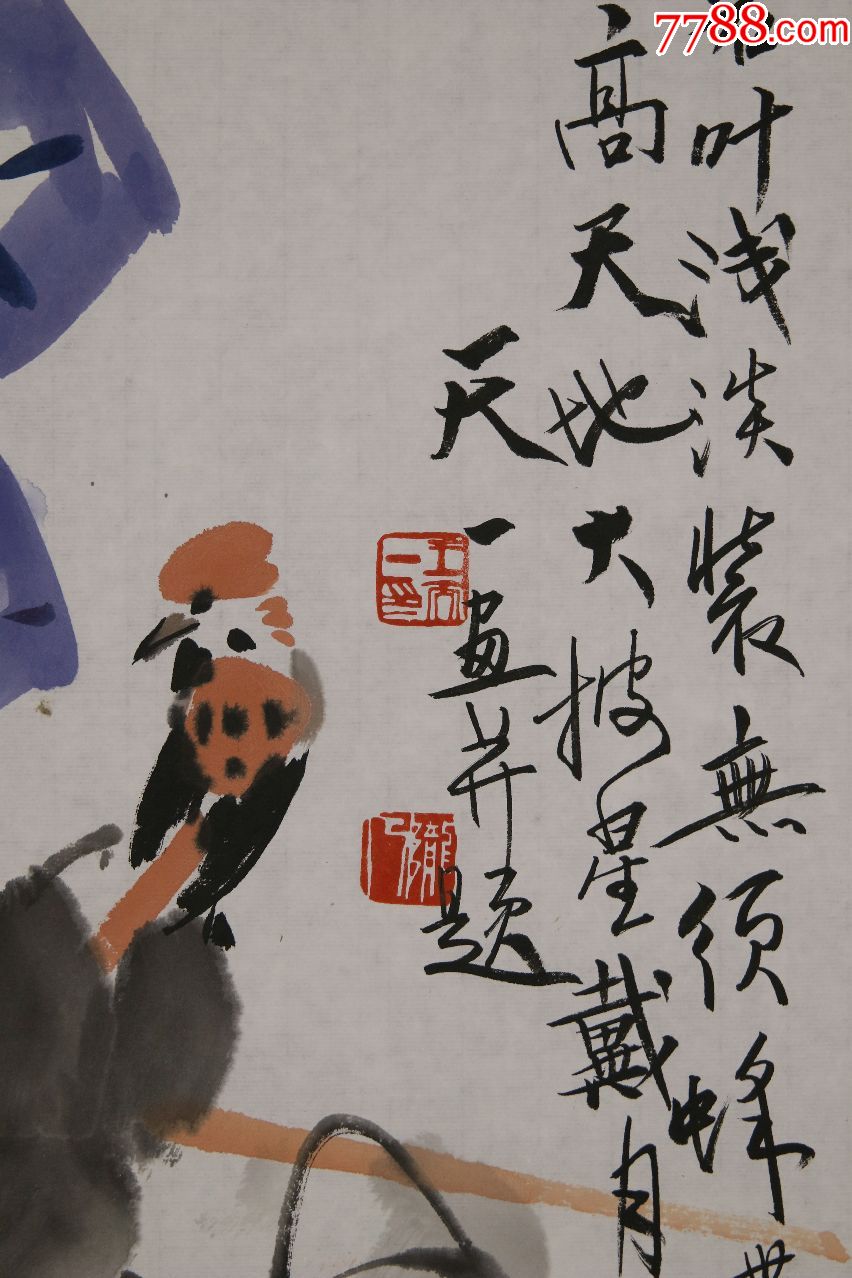 7788.com
叶浅淡装無须蜂
高天地大披星戴月
天一画并题